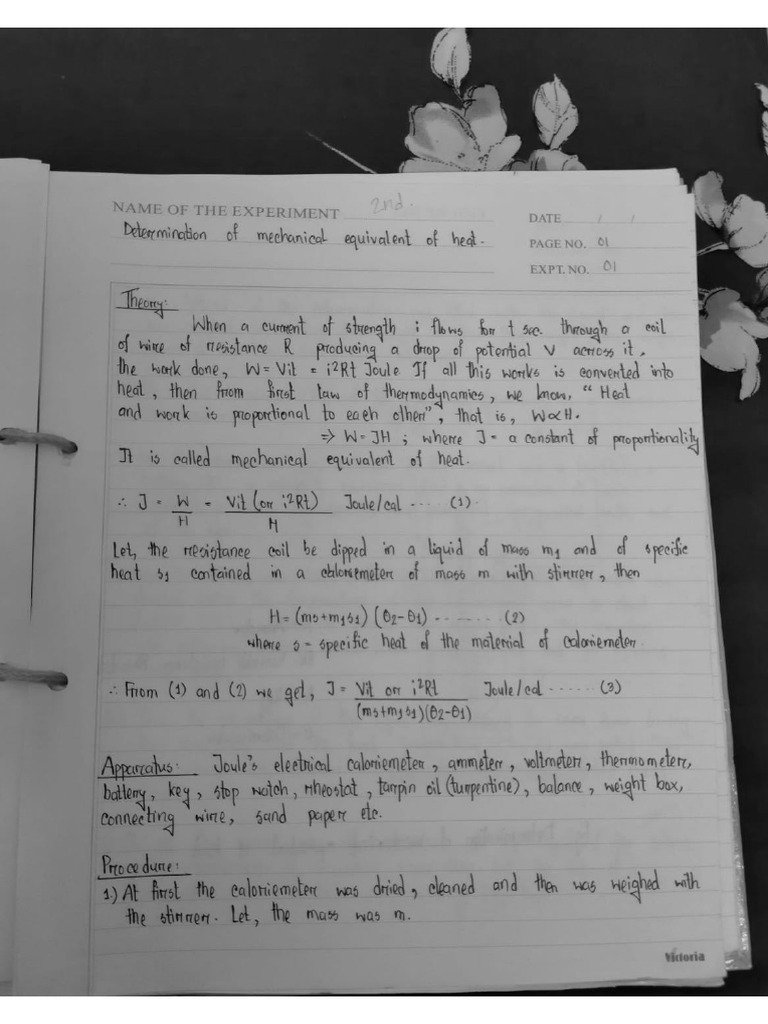 NAME OF THE EXPERIMENT 2nd.
Determination of mechanical equivalent of heat.
DATE / /
PAGE NO. 01
EXPT. NO. 01
Theory:
When a current of strength i flows for t sec. through a coil
of wire of resistance R producing a drop of potential V across it,
the work done, W = Vit = i²Rt Joule. If all this works is converted into
heat, then from first law of thermodynamics, we know, "Heat
and work is proportional to each other", that is, W∝H.
=> W = JH ; where J = a constant of proportionality
It is called mechanical equivalent of heat.
∴ J = W/H = Vit (or i²Rt)/H Joule/cal ---- (1)
Let, the resistance coil be dipped in a liquid of mass m₁ and of specific
heat s₁ contained in a caloriemeter of mass m with stirrer, then
H = (ms+m₁s₁) (θ₂-θ₁) -------- (2)
where s = specific heat of the material of caloriemeter
∴ From (1) and (2) we get, J = Vit or i²Rt/(ms+m₁s₁)(θ₂-θ₁) Joule/cal ------ (3)
Apparatus: Joule's electrical caloriemeter, ammeter, voltmeter, thermometer,
battery, key, stop watch, rheostat, tarpin oil (turpentine), balance, weight box,
connecting wire, sand paper etc.
Procedure:
1.) At first the caloriemeter was dried, cleaned and then was weighed with
the stirrer. Let, the mass was m.
Victoria